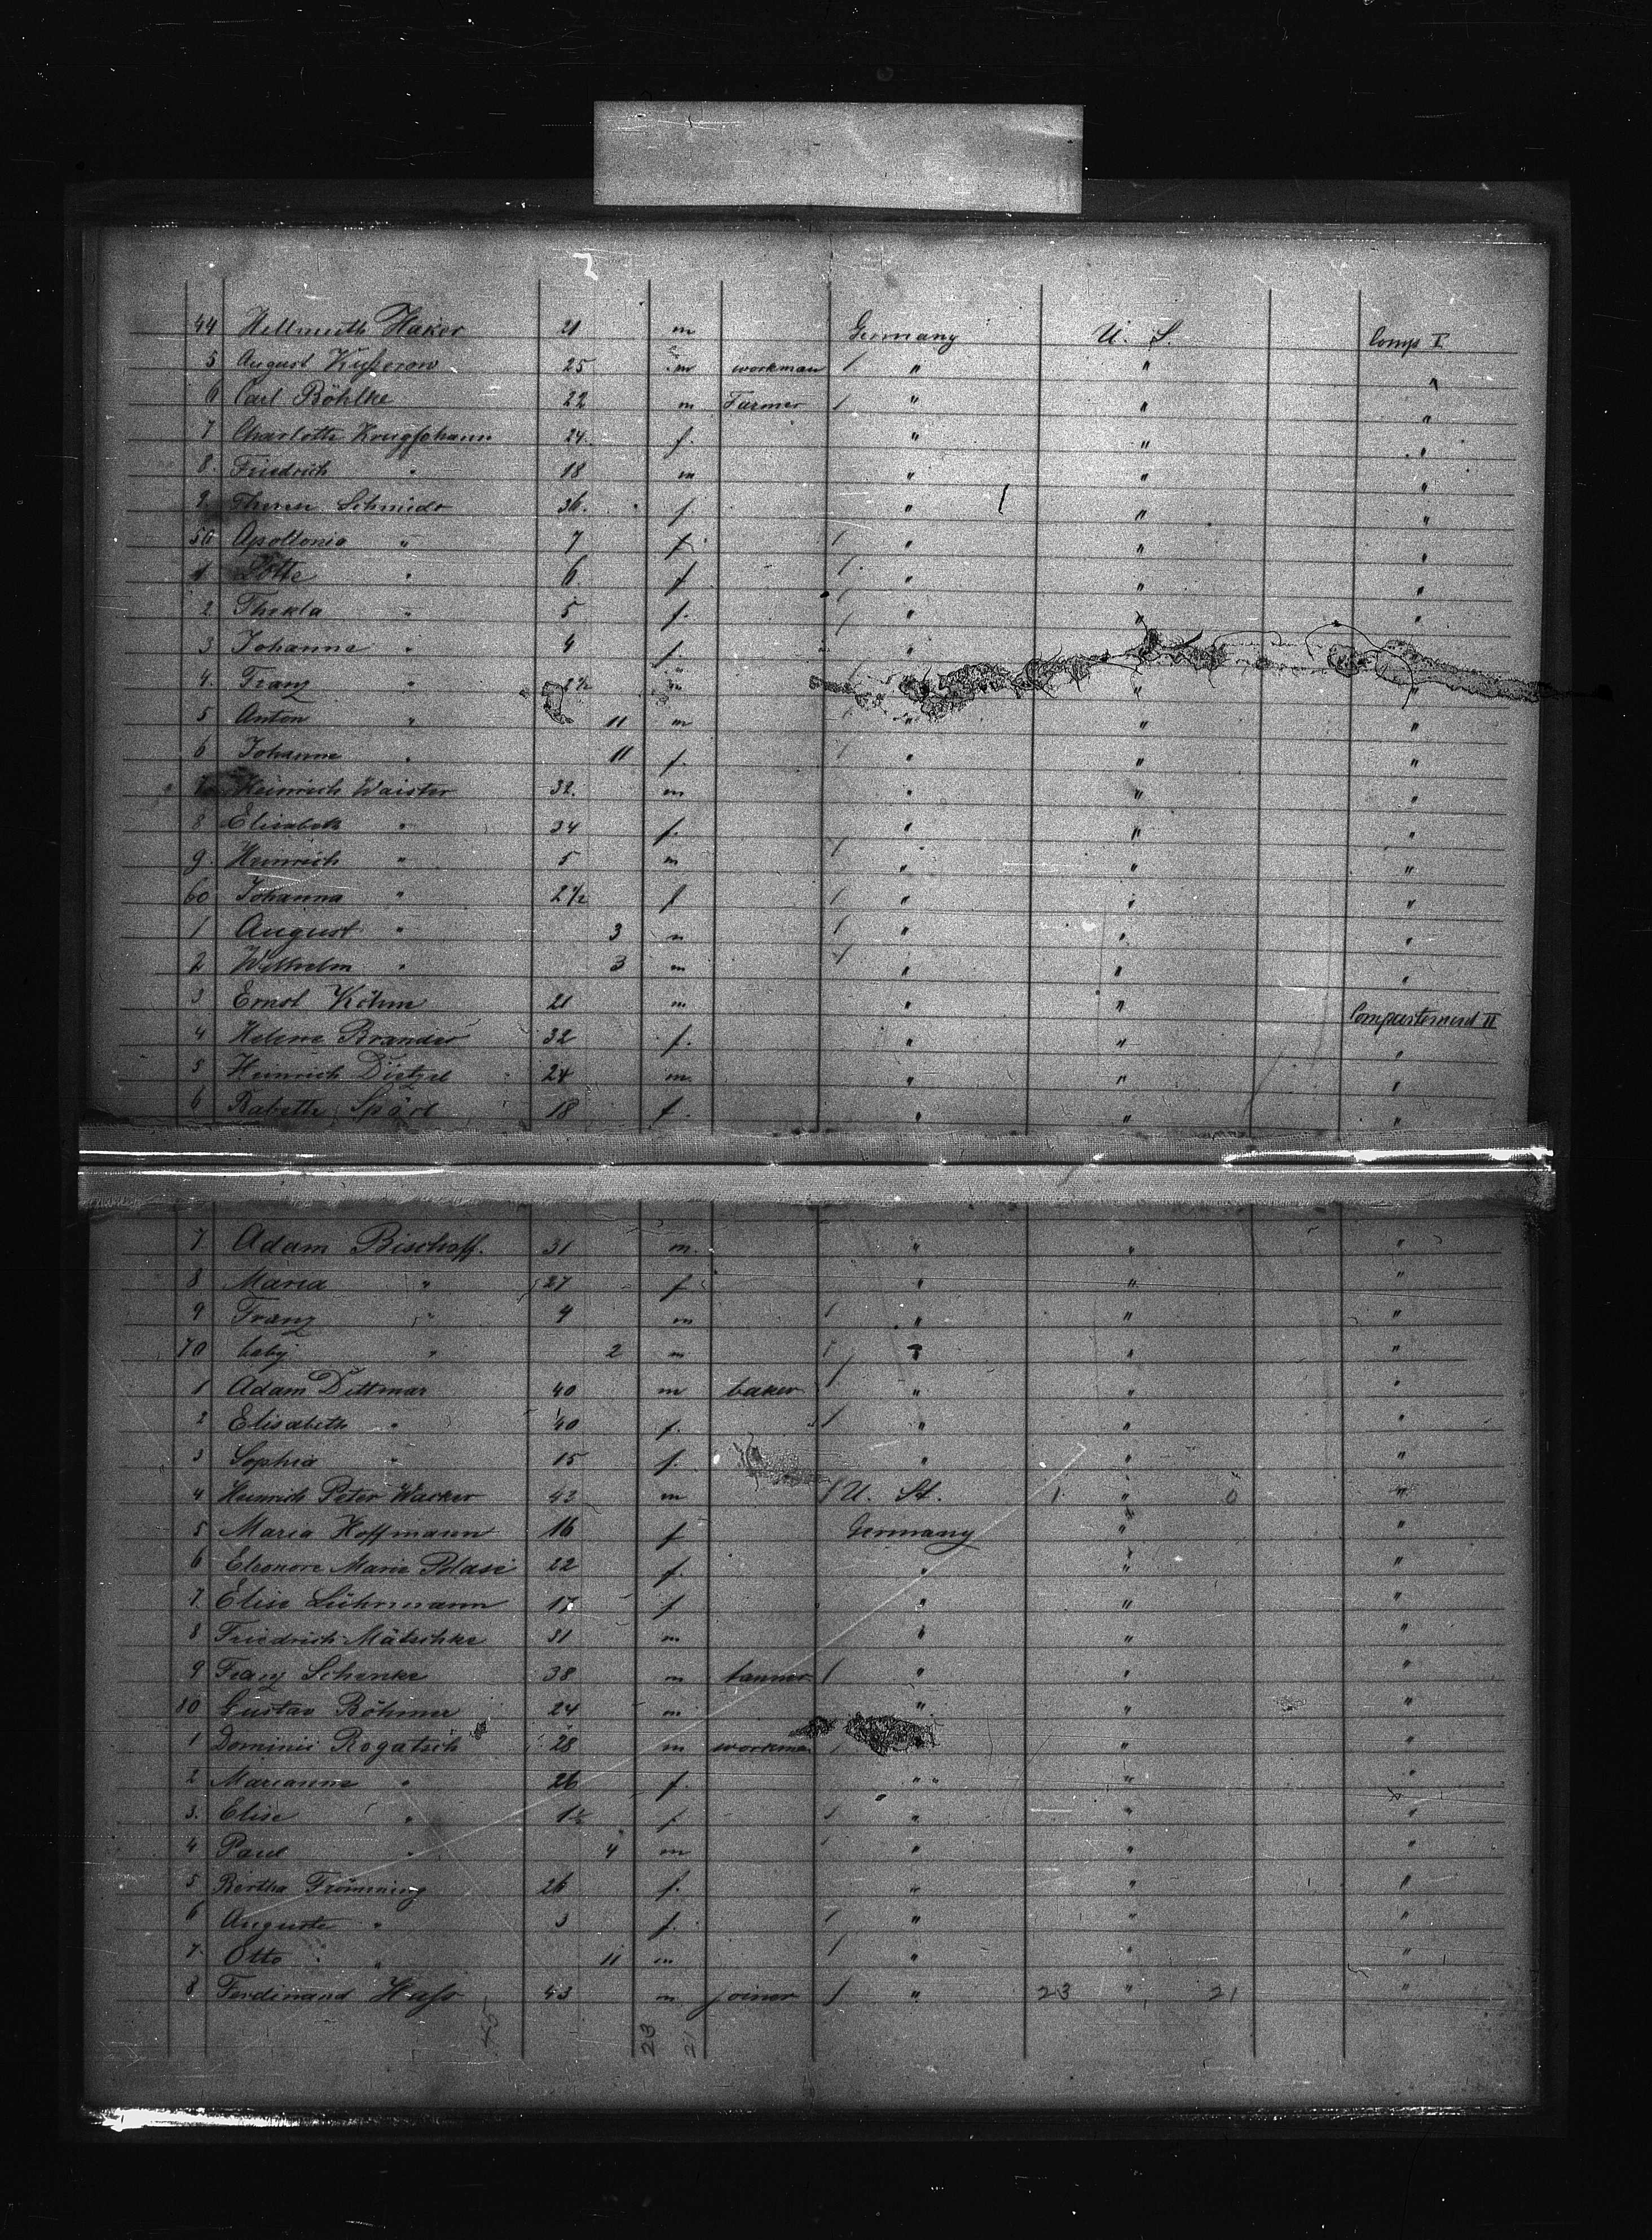 44 Hellmuth Haker 21 m Germany U. S. Comp I
5 August Kußerow 25 m workman " " "
6 Carl Böhlke 22 m Farmer " " "
7 Charlotte Krugjohann 24 f. " " "
8. Friedrich " 18 m " " "
9 Schmidt 36. f " " "
50 Apollonia " 7 f. " " "
1 Lotte " 6 f " " "
2 Thekla " 5 f. " " "
3 Johanne " 4 f. "
4. Franz " 2½ m " "
5 Anton " 11 m " " "
6 Johanne " 11 f. " " "
Heinrich Waister 32. m " " "
8 Elisabeth " 34 f. " " "
9. Heinrich " 5 m " " "
60 Johanna " 2½ f " " "
1 August " 3 m " " "
2 Wilhelm " 3 m " " "
3 Ernst Köhm 21 m " " Compartement II
4 Helene Brandes 32 f. " " "
5 Heinrich Dietzel 24 m. " " "
6 Babette Spörl 18 f. " " "
7 Adam Bischoff. 31 m. " " "
8 Maria " 27 f " " "
9 Franz " 4 m " " "
70 baby " 2 m " " "
1 Adam Dittmar 40 m baker " " "
2 Elisabeth " 40 f. " " "
3 Sophia " 15 f. " " "
4 Heinrich Peter Wacker 43 m U. St. 1 " 0 "
5 Maria Hoffmann 16 f Germany " "
6 Eleonore Marie Blase 22 f. " " "
7. Elise Lührmann 17 f " " "
8 Friedrich Mätschke 31 m " " "
9 Franz Schenke 38 m tanner " " "
80 Gustav Böhmer 24 m " " "
1 Dominic Rogatsch 28 m workman " "
2 Marianne " 26 f. " " " "
3. Elise " 1½ f " " "
4 Paul " 4 m " " "
5 Bertha Frömming 26 f. " " "
6 Auguste " 3 f. " " "
7. Otto " 11 m " " "
8 Ferdinand Haß 43 m joiner " 23 " 21 "
45 23 21